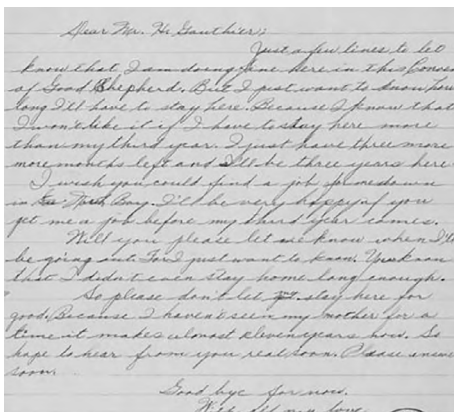 Dear Mr. H. Gauthier;
Just a few lines to let
know that I am doing fine here in this Conven
of Good Shepherd. But I just want to know how
long I'll have to stay here. Because I know that
I won't like it if I have to stay here more
than my third year. I just have three more
more months left and I'll be three years here
I wish you could find a job for me down
in North Bay. I'll be very happy if you
get me a job before my third year comes.
Will you please let me know when I'll
be going out. For I just want to know. You know
that I didn't even stay home long enough.
So please don't let me stay here for
good. Because I haven't seen my mother for a
time it makes almost eleven years now. So
hope to hear from you real soon. Please answer
soon.
Good bye for now.
With all my love